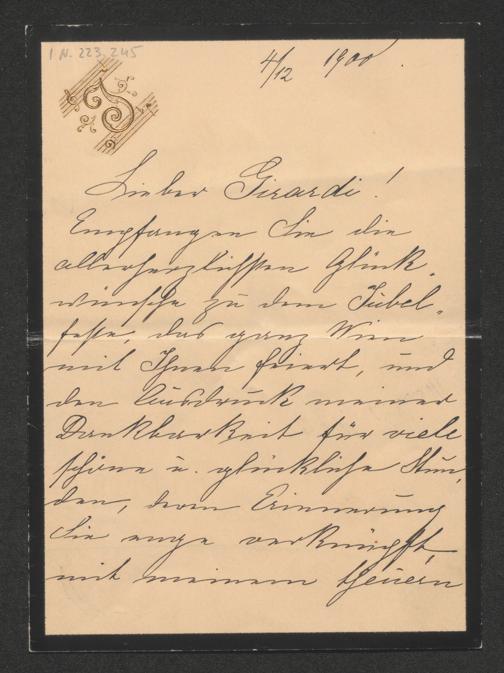 I.N. 223.245
4/12 1900.
Lieber Girardi!
Empfangen Sie die
allerherzlichsten Glück-
wünsche zu dem Jubel-
feste, das ganz Wien
mit Ihnen feiert, und
den Ausdruck meiner
Dankbarkeit für viele
schöne u. glückliche Stun-
den, deren Erinnerung
Sie enge verknüpft,
mit meinem theuern